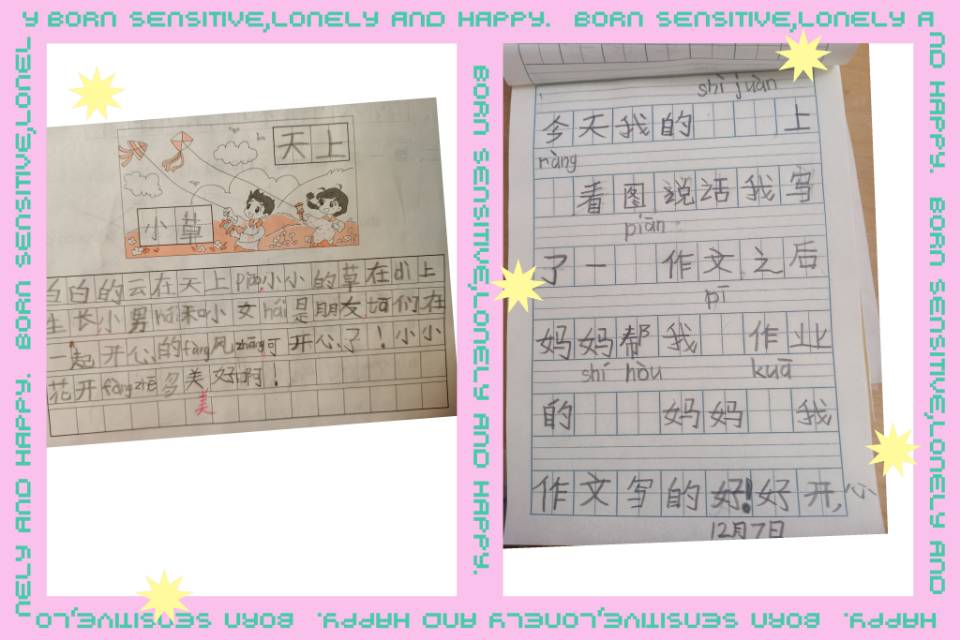 Y BORN SENSITIVE,LONELY AND HAPPY. BORN SENSITIVE,LONELY A
ND HAPPY. BORN SENSITIVE,LONELY AND
HAPPY. BORN SENSITIVE,LONELY AND HAPPY. BORN SENSITIVE,LO
NELY AND HAPPY. BORN SENSITIVE,LONEL
天上
小草
白白的云在天上piāo小小的草在dì上
生长小男hái和小女hái是朋友tā们在
一起开心的fàng风zhēng可开心了！小小
花开fàng多美好啊！
美
BORN SENSITIVE,LONELY AND HAPPY.
shì juàn
今天我的 上
ràng
看图说话我写
piān
了一 作文之后
pī
妈妈帮我 作业
shí hòu kuā
的 妈妈 我
作文写的好!好开心
12月7日